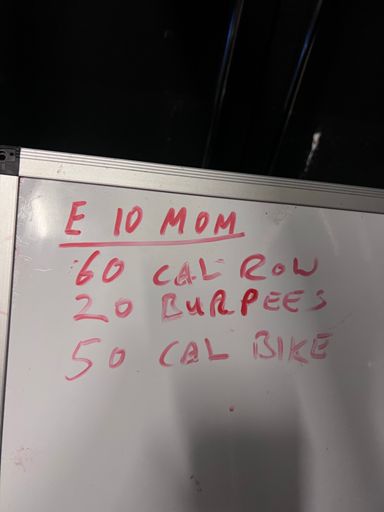 E 10 MOM
60 CAL ROW
20 BURPEES
50 CAL BIKE